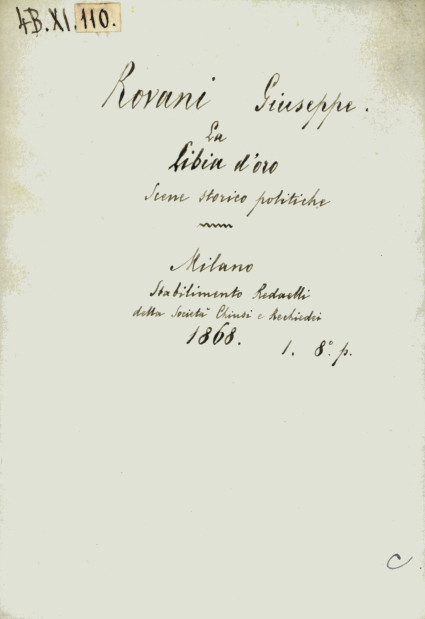 4B.XI.110.
Rovani Giuseppe.
La
Libia d'oro
Scene storico politiche
Milano
Stabilimento Redaelli
della Società Chiusi e Rechiedei
1868. 1. 8° p.
C